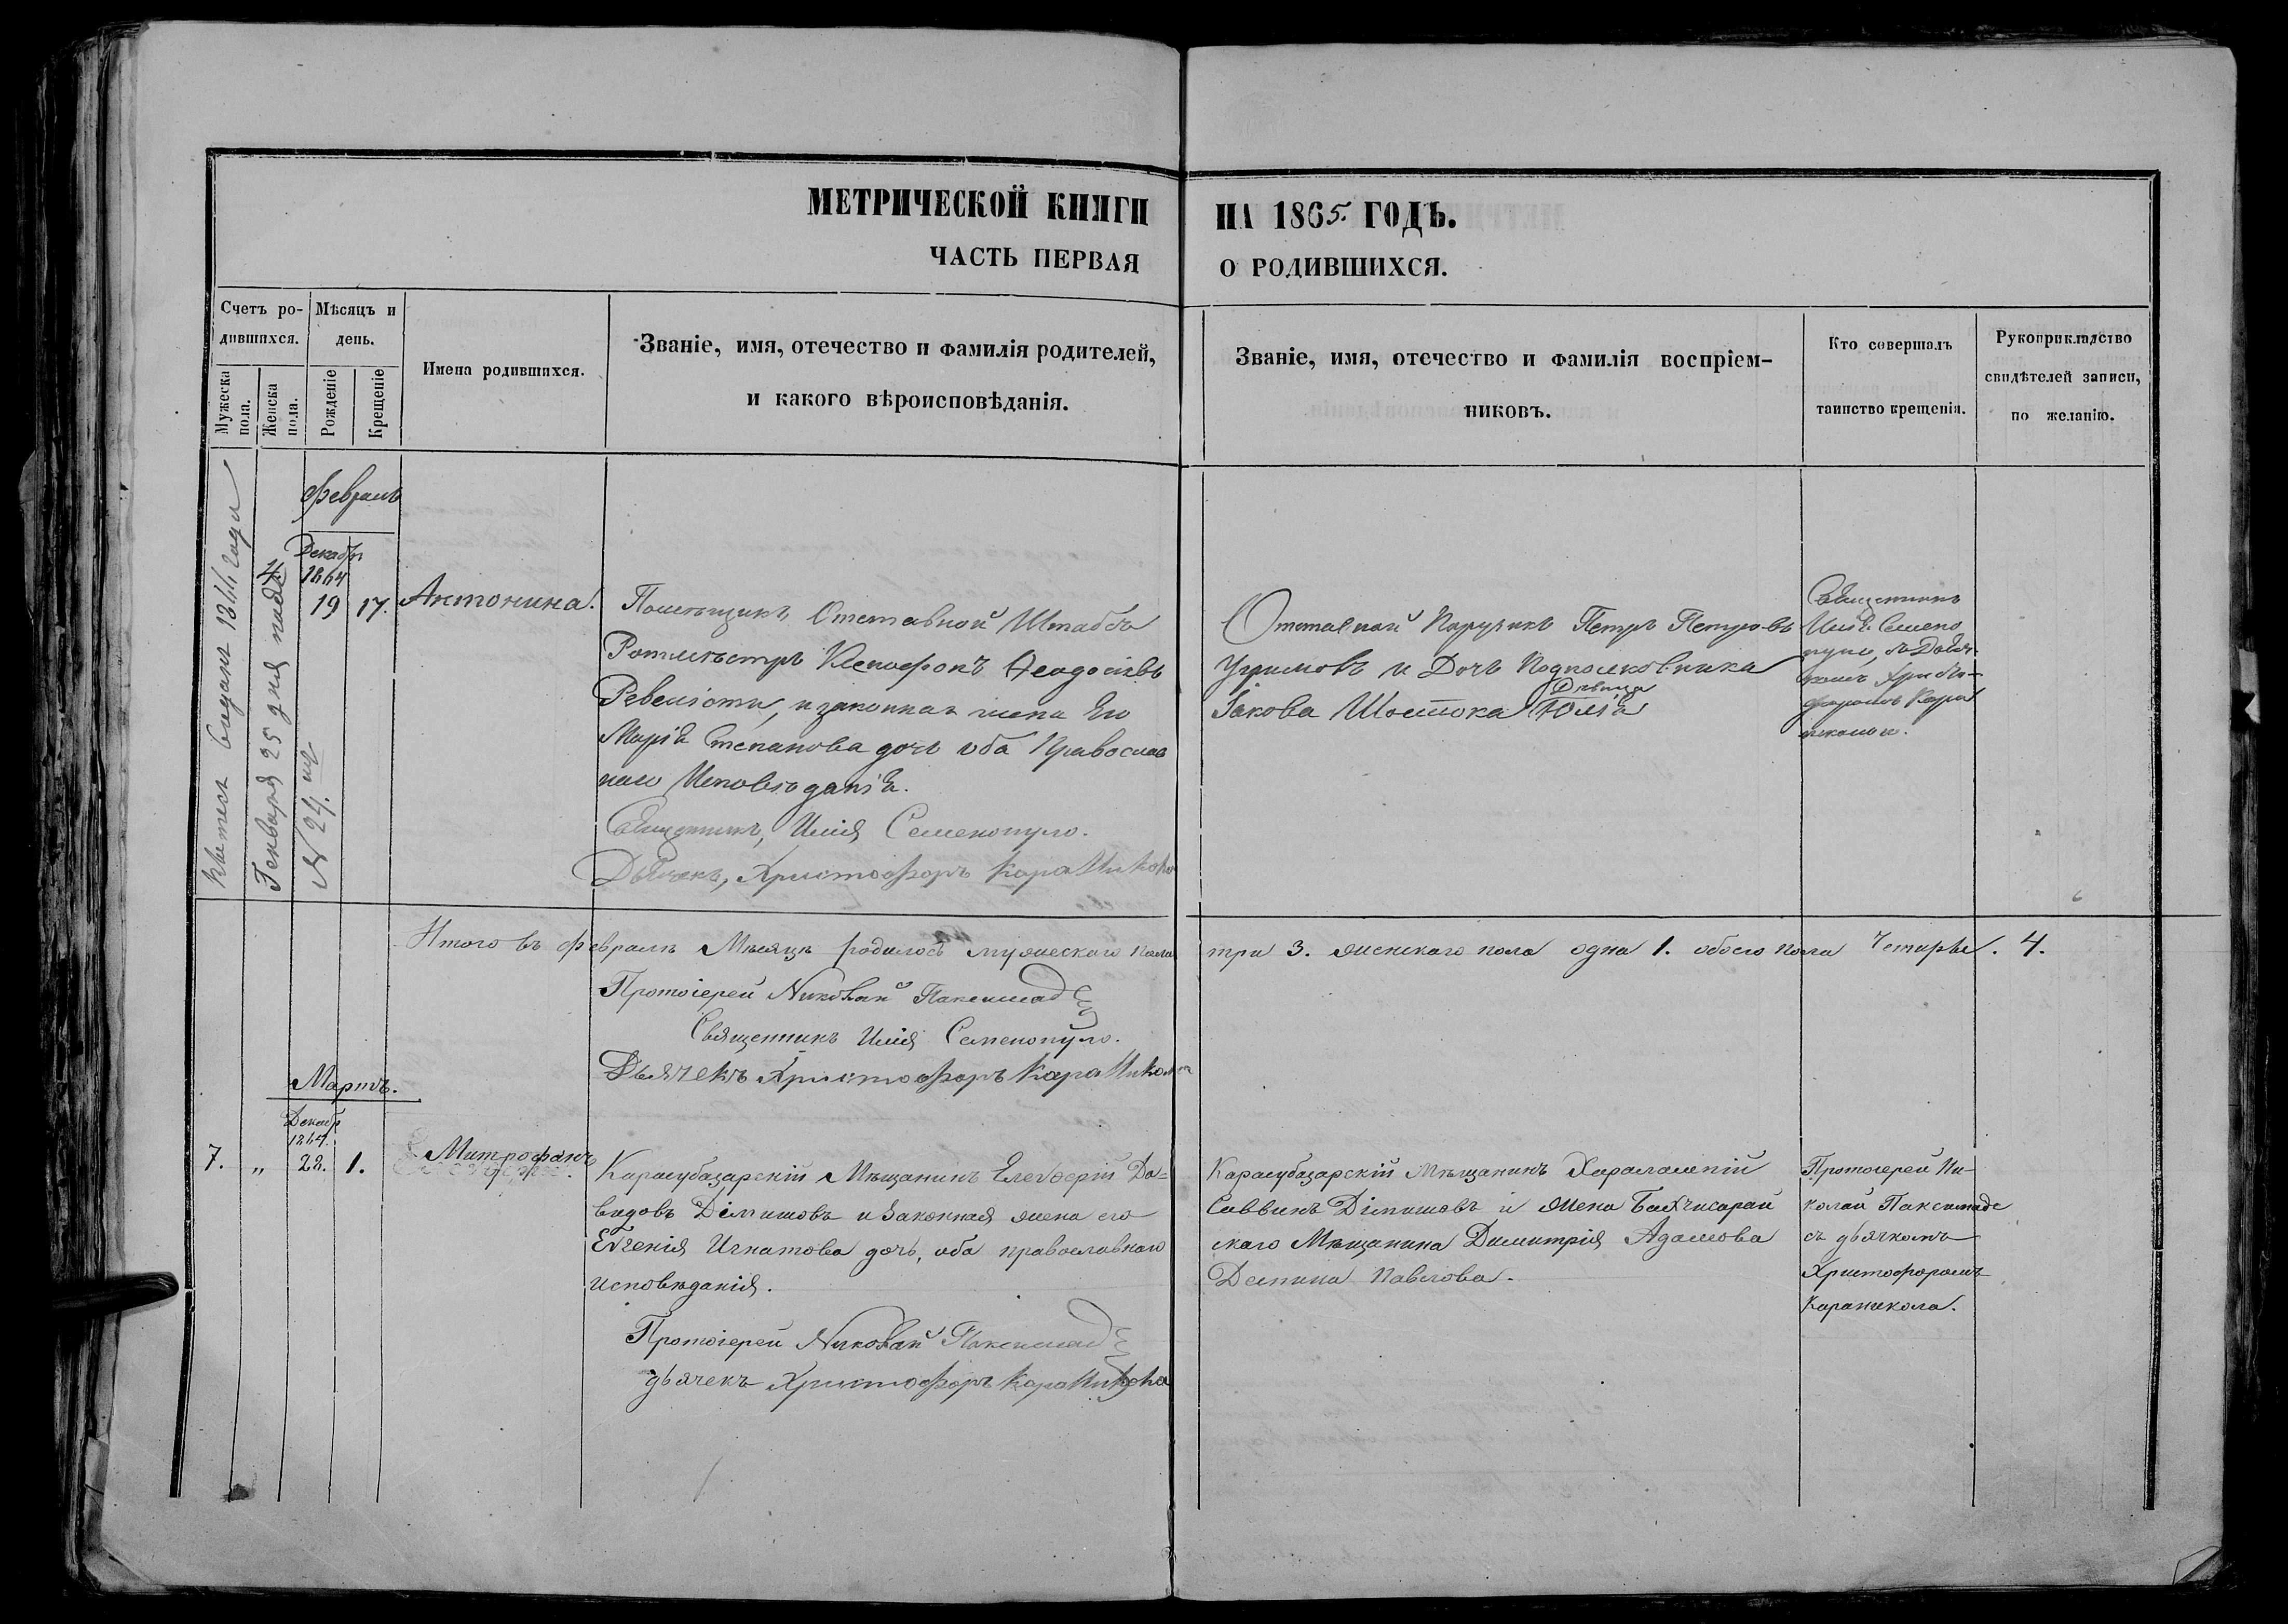 МЕТРИЧЕСКОЙ КНИГИ НА 1865. ГОДЪ.
ЧАСТЬ ПЕРВАЯ О РОДИВШИХСЯ.
Счетъ ро-
дившихся.
Мужеска
пола.
Женска
пола.
Мѣсяцъ и
день.
Рожденіе
Крещеніе
Имена родившихся.
Званіе, имя, отечество и фамилія родителей,
и какого вѣроисповѣданія.
Званіе, имя, отечество и фамилія воспріем-
никовъ.
Кто совершалъ
таинство крещенія.
Рукоприкладство
свидѣтелей записи,
по желанію.
года
Генваря 25 дня
N 24.
Февраль
4.
Декабр
1864
19
17.
Антонина.
Помѣщикъ Отставной Штабсъ
Ротмистръ Ксенофонъ Ѳеодосіевъ
Ревеліоти, и законная жена Его
Марія Степанова дочь оба Православ
наго Исповѣданія.
Священникъ, Илія Семенопуло.
Дьячекъ, Христофоръ Кара Никола
Отставной Поручикъ Петръ Петровъ
Угримовъ и Дочь Подполковника
Іакова Шостока Дѣвица Юлія
Священникъ
Илія Семено
пуло, съ Дьяч
комъ Христо-
форомъ Кара
николою.
Итого въ Февралѣ Мѣсяцѣ родилось мужескаго пола три 3. женскаго пола одна 1. обоего пола Четыре. 4.
Протоіерей Николай Паксимаде
Священникъ Илія Семенопуло.
Дьячекъ Христофоръ Кара Никола
Мартъ.
7.
"
Декабр
1864.
28.
1.
Митрофанъ
Карасубазарскій Мѣщанинъ Елевѳерій Да=
видовъ Делишовъ и Законная жена его
Евгенія Игнатова дочь, оба православнаго
исповѣданія.
Протоіерей Николай Паксимаде
дьячекъ Христофоръ Кара Никола
Карасубазарскій Мѣщанинъ Харалампій
Саввинъ и жена Бахчисарай
скаго Мѣщанина Димитрія Адамова
Деспина Павлова.
Протоіерей Ни-
колай Паксимаде
съ дьячкомъ
Христофоромъ
Караникола.